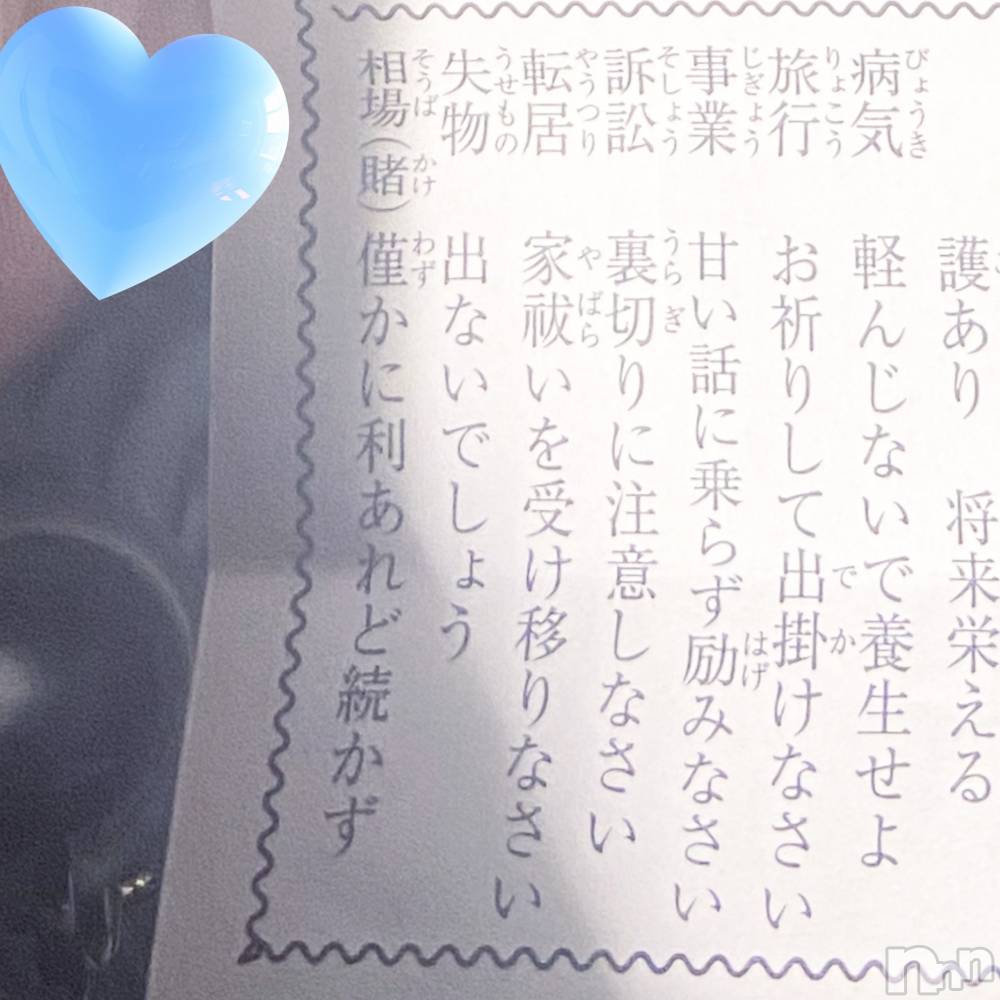 護あり 将来栄える
病気 軽んじないで養生せよ
旅行 お祈りして出掛けなさい
事業 甘い話に乗らず励みなさい
訴訟 裏切りに注意しなさい
転居 家祓いを受け移りなさい
失物 出ないでしょう
相場(賭) 僅かに利あれど続かず
びょうき
りょこう
でか
じぎょう
はげ
そしょう
うらぎ
やうつり
やばら
うせもの
そうば
かけ
わず
nnn